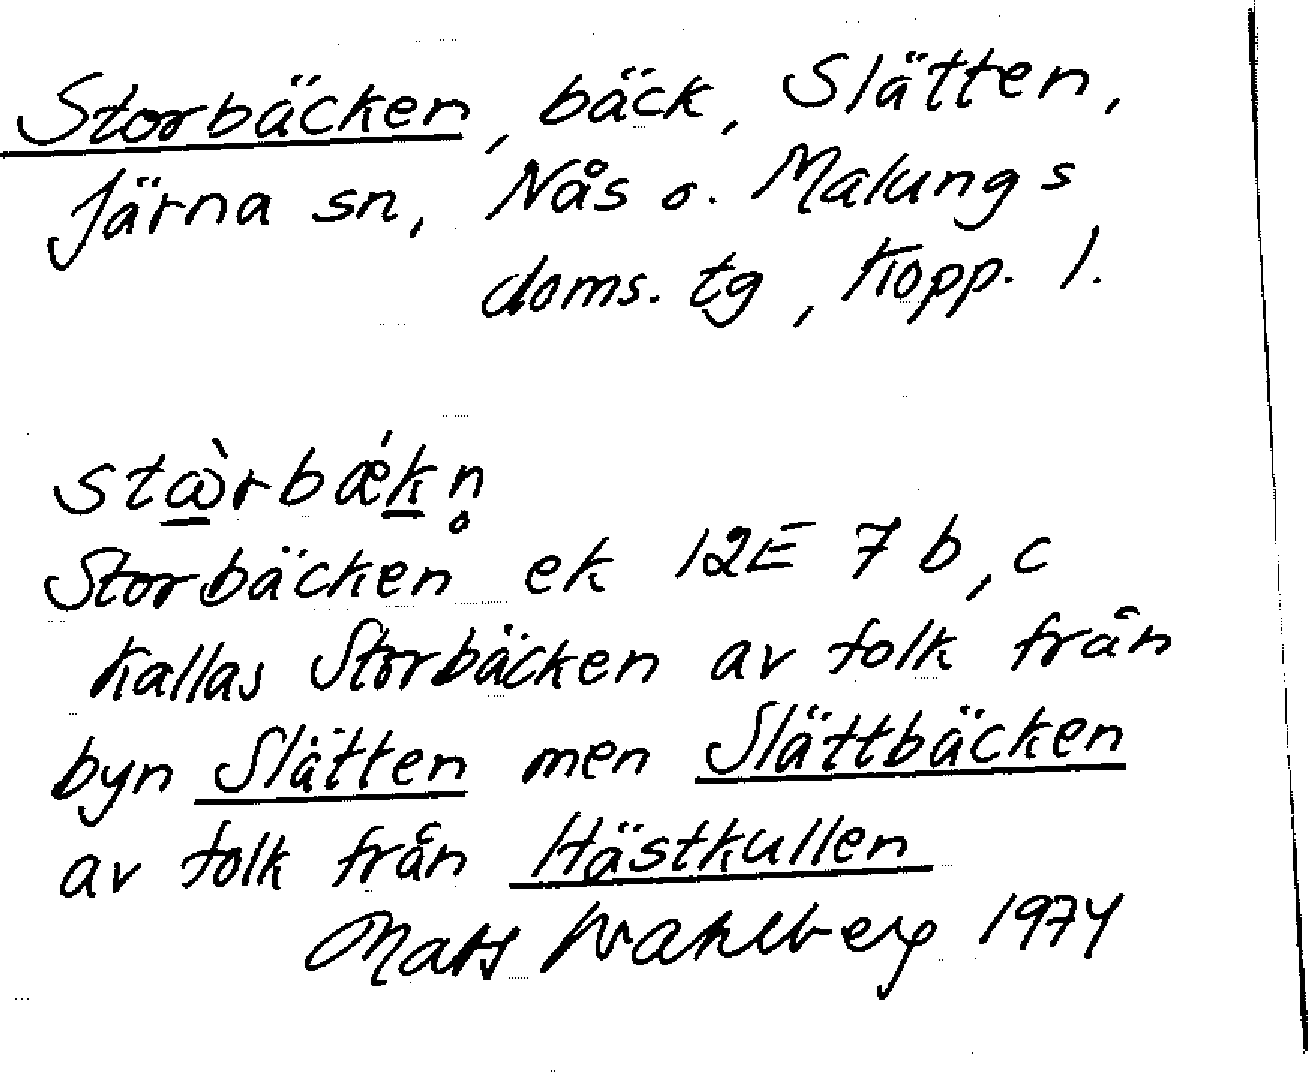 Storbäcken, bäck, Slätten,
Järna sn, Nås o. Malungs
doms. tg, Kopp. l.
Storbäcken ek 12E 7 b, c
Kallas Storbäcken av folk från
byn Slätten men Slättbäcken
av folk från Hästkullen
Mats Wahlberg 1974